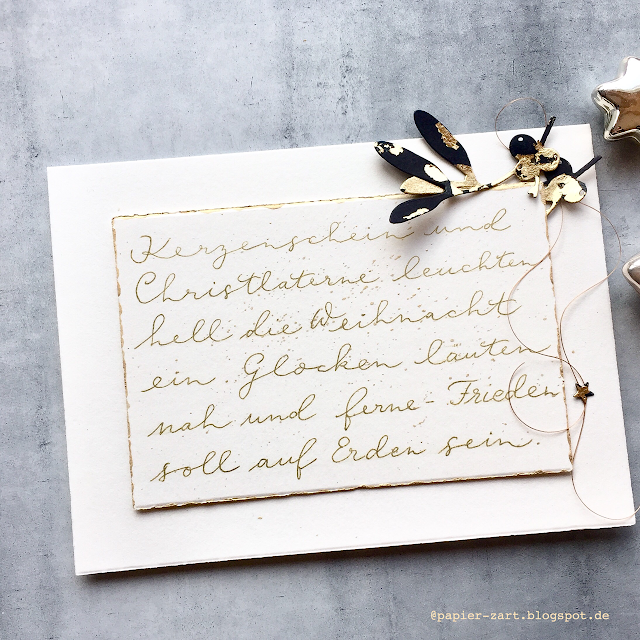 Kerzenschein und
Christlaterne leuchten
hell die Weihnacht
ein Glocken läuten
nah und ferne - Frieden
soll auf Erden sein.
@papier-zart.blogspot.de